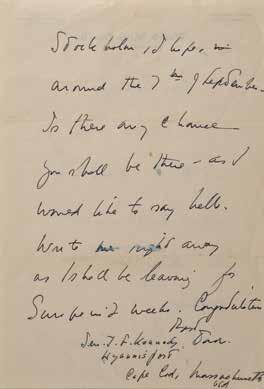 Stockholm, I hope,
around the 7th of September.
Is there any chance
you shall be there - as I
would like to say hello.
Write me right away
as I shall be leaving for
Europe in 2 weeks. Congratulations
Best
Sen. J. F. Kennedy, Jack.
Hyannis Port
Cape Cod, Massachusetts
USA